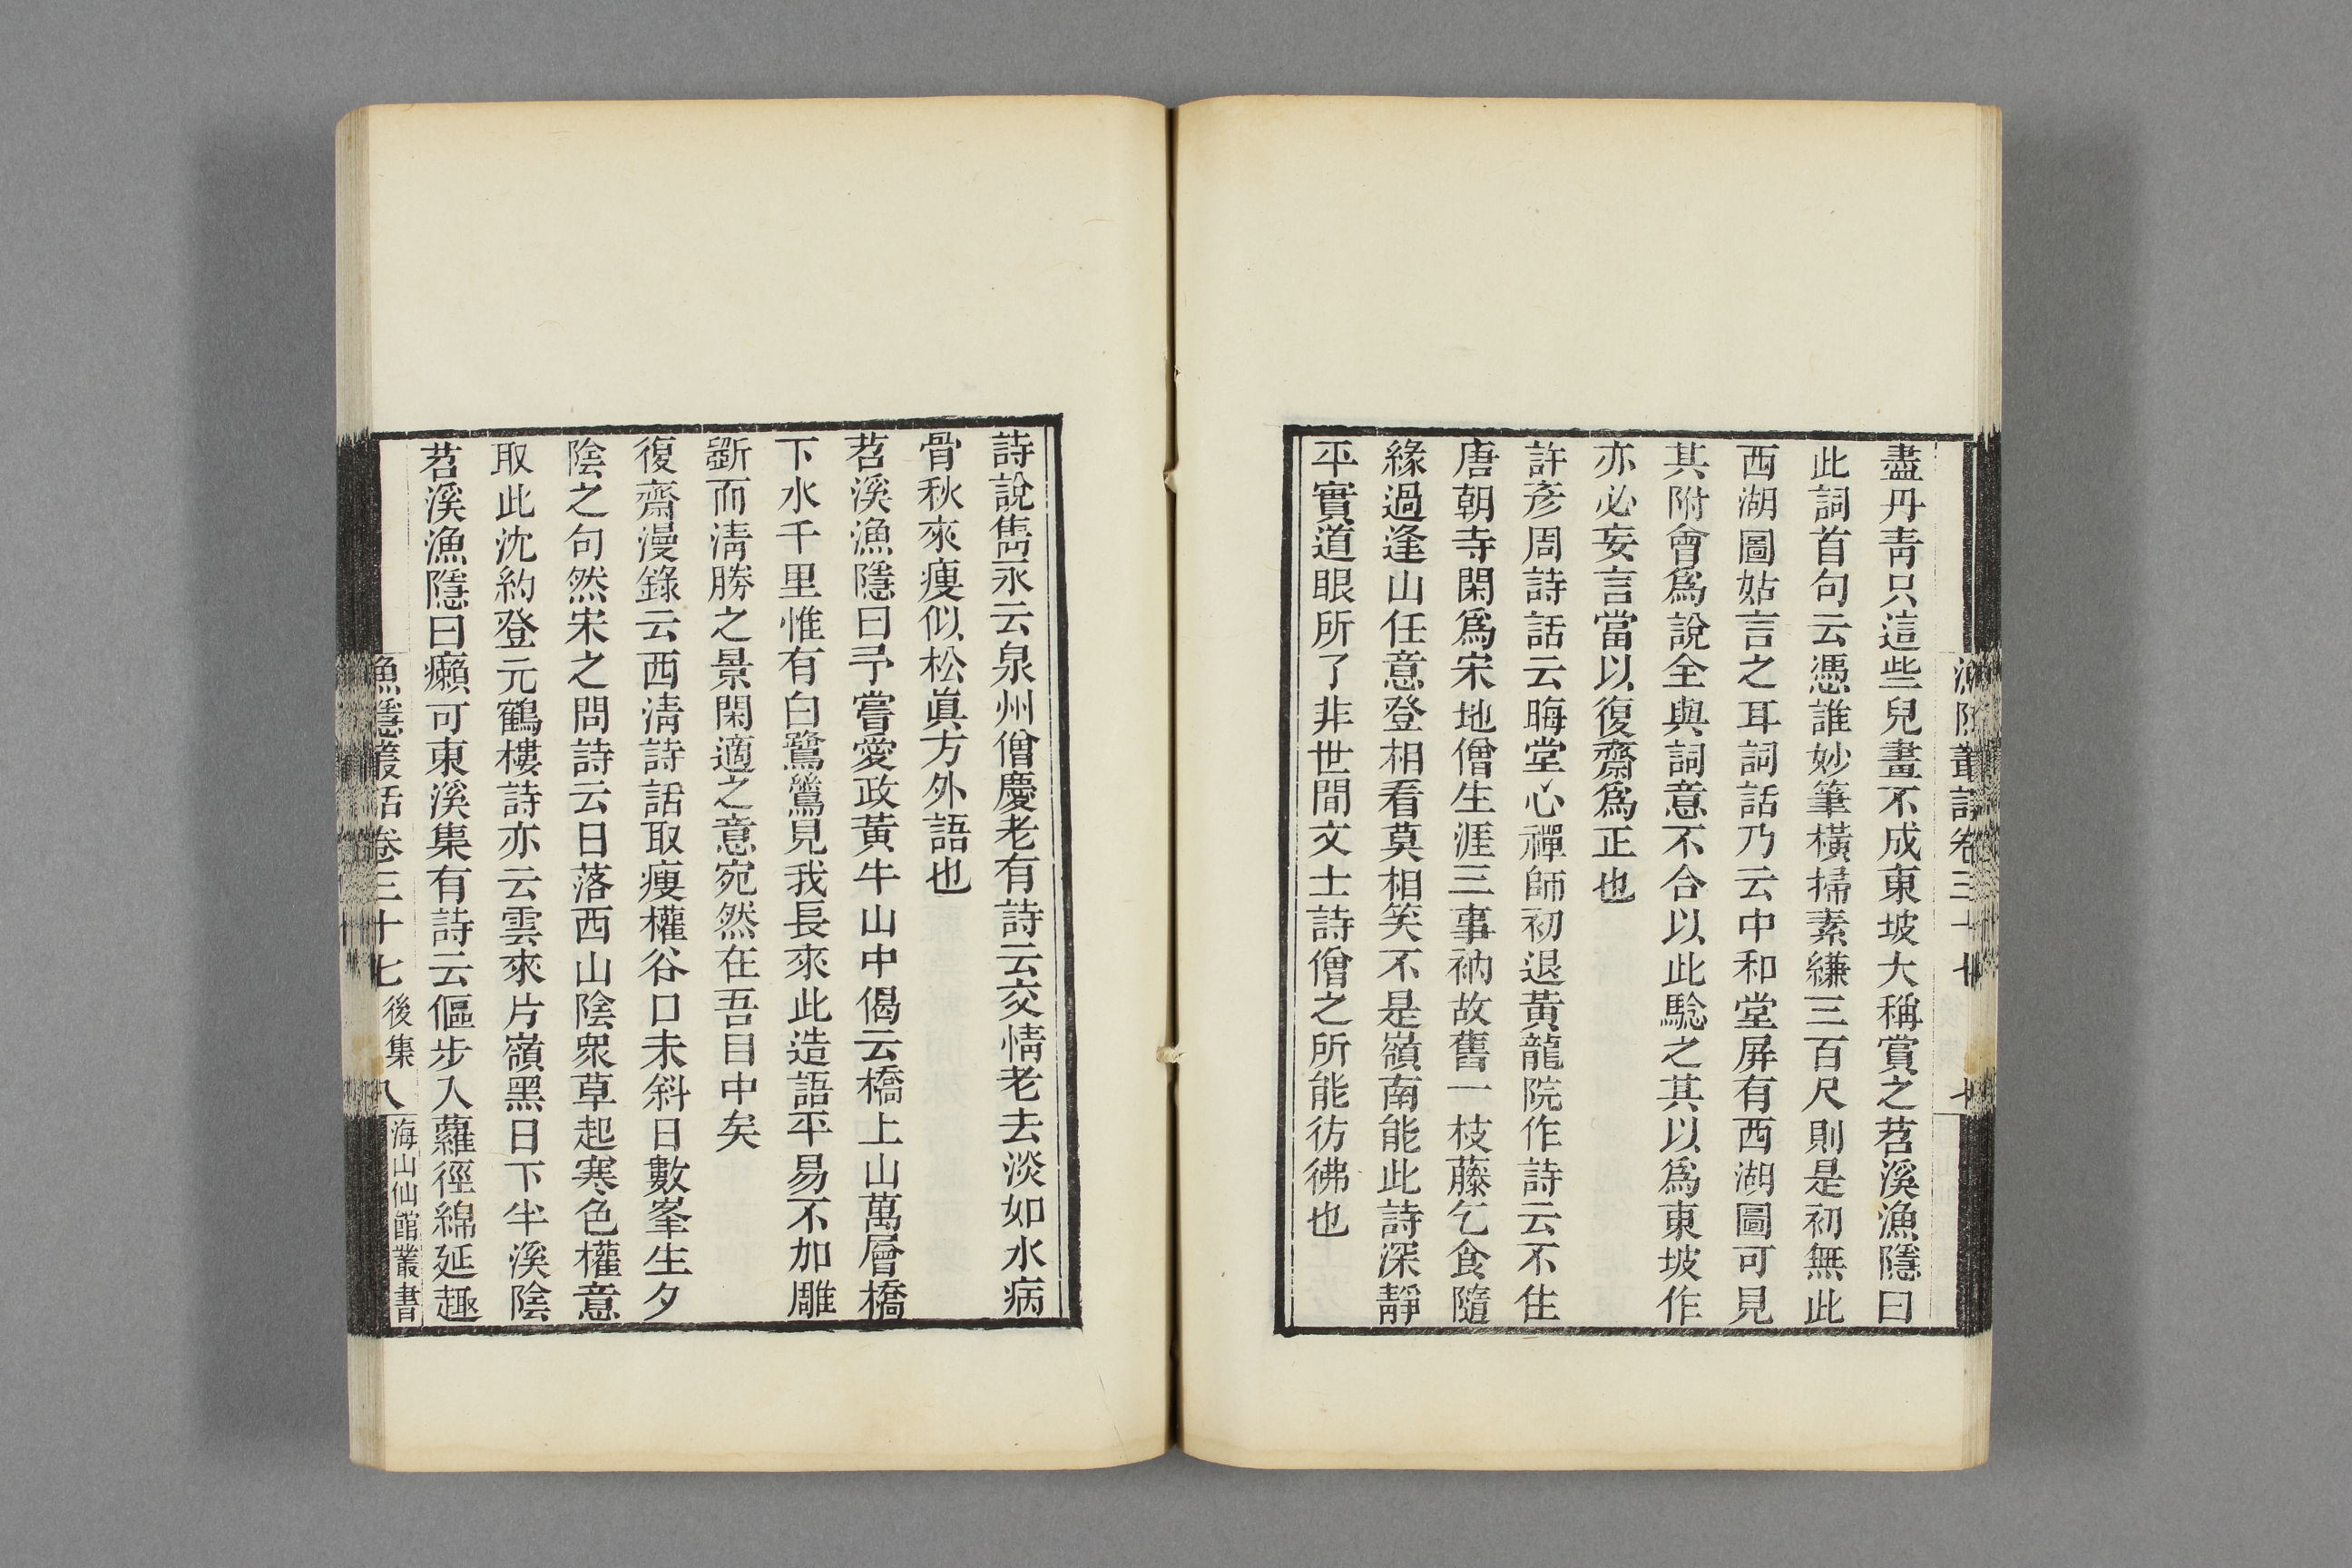 盡丹靑只這些兒畫不成東坡大稱賞之苕溪漁隱曰
此詞首句云憑誰妙筆橫掃素縑三百尺則是初無此
西湖圖姑言之耳詞話乃云中和堂屏有西湖圖可見
其附會爲說全與詞意不合以此騐之其以爲東坡作
亦必妄言當以復齋爲正也
許彥周詩話云晦堂心禪師初退黃龍院作詩云不住
唐朝寺閑爲宋地僧生涯三事衲故舊一枝藤乞食隨
緣過逢山任意登相看莫相笑不是嶺南能此詩深靜
平實道眼所了非世間文士詩僧之所能彷彿也
詩說雋永云泉州僧慶老有詩云交情老去淡如水病
骨秋來瘦似松眞方外語也
苕溪漁隱曰予嘗愛政黃牛山中偈云橋上山萬層橋
下水千里惟有白鷺鷥見我長來此造語平易不加雕
斲而淸勝之景閑適之意宛然在吾目中矣
復齋漫錄云西淸詩話取瘦權谷口未斜日數峯生夕
陰之句然宋之問詩云日落西山陰衆草起寒色權意
取此沈約登元鶴樓詩亦云雲來片嶺黑日下半溪陰
苕溪漁隱曰癩可東溪集有詩云傴步入蘿徑綿延趣
漁隱叢話卷三十七 後集 八 海山仙館叢書